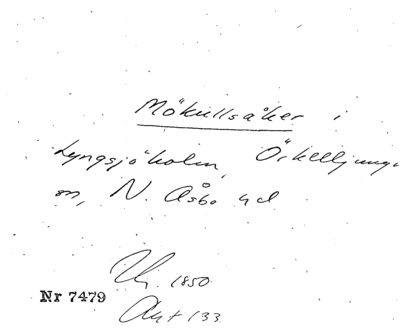 Mökullsåker i
Lyngsjöholm, Örkelljunga
sn, N. Åsbo hd
1850
Nr 7479
Akt 133